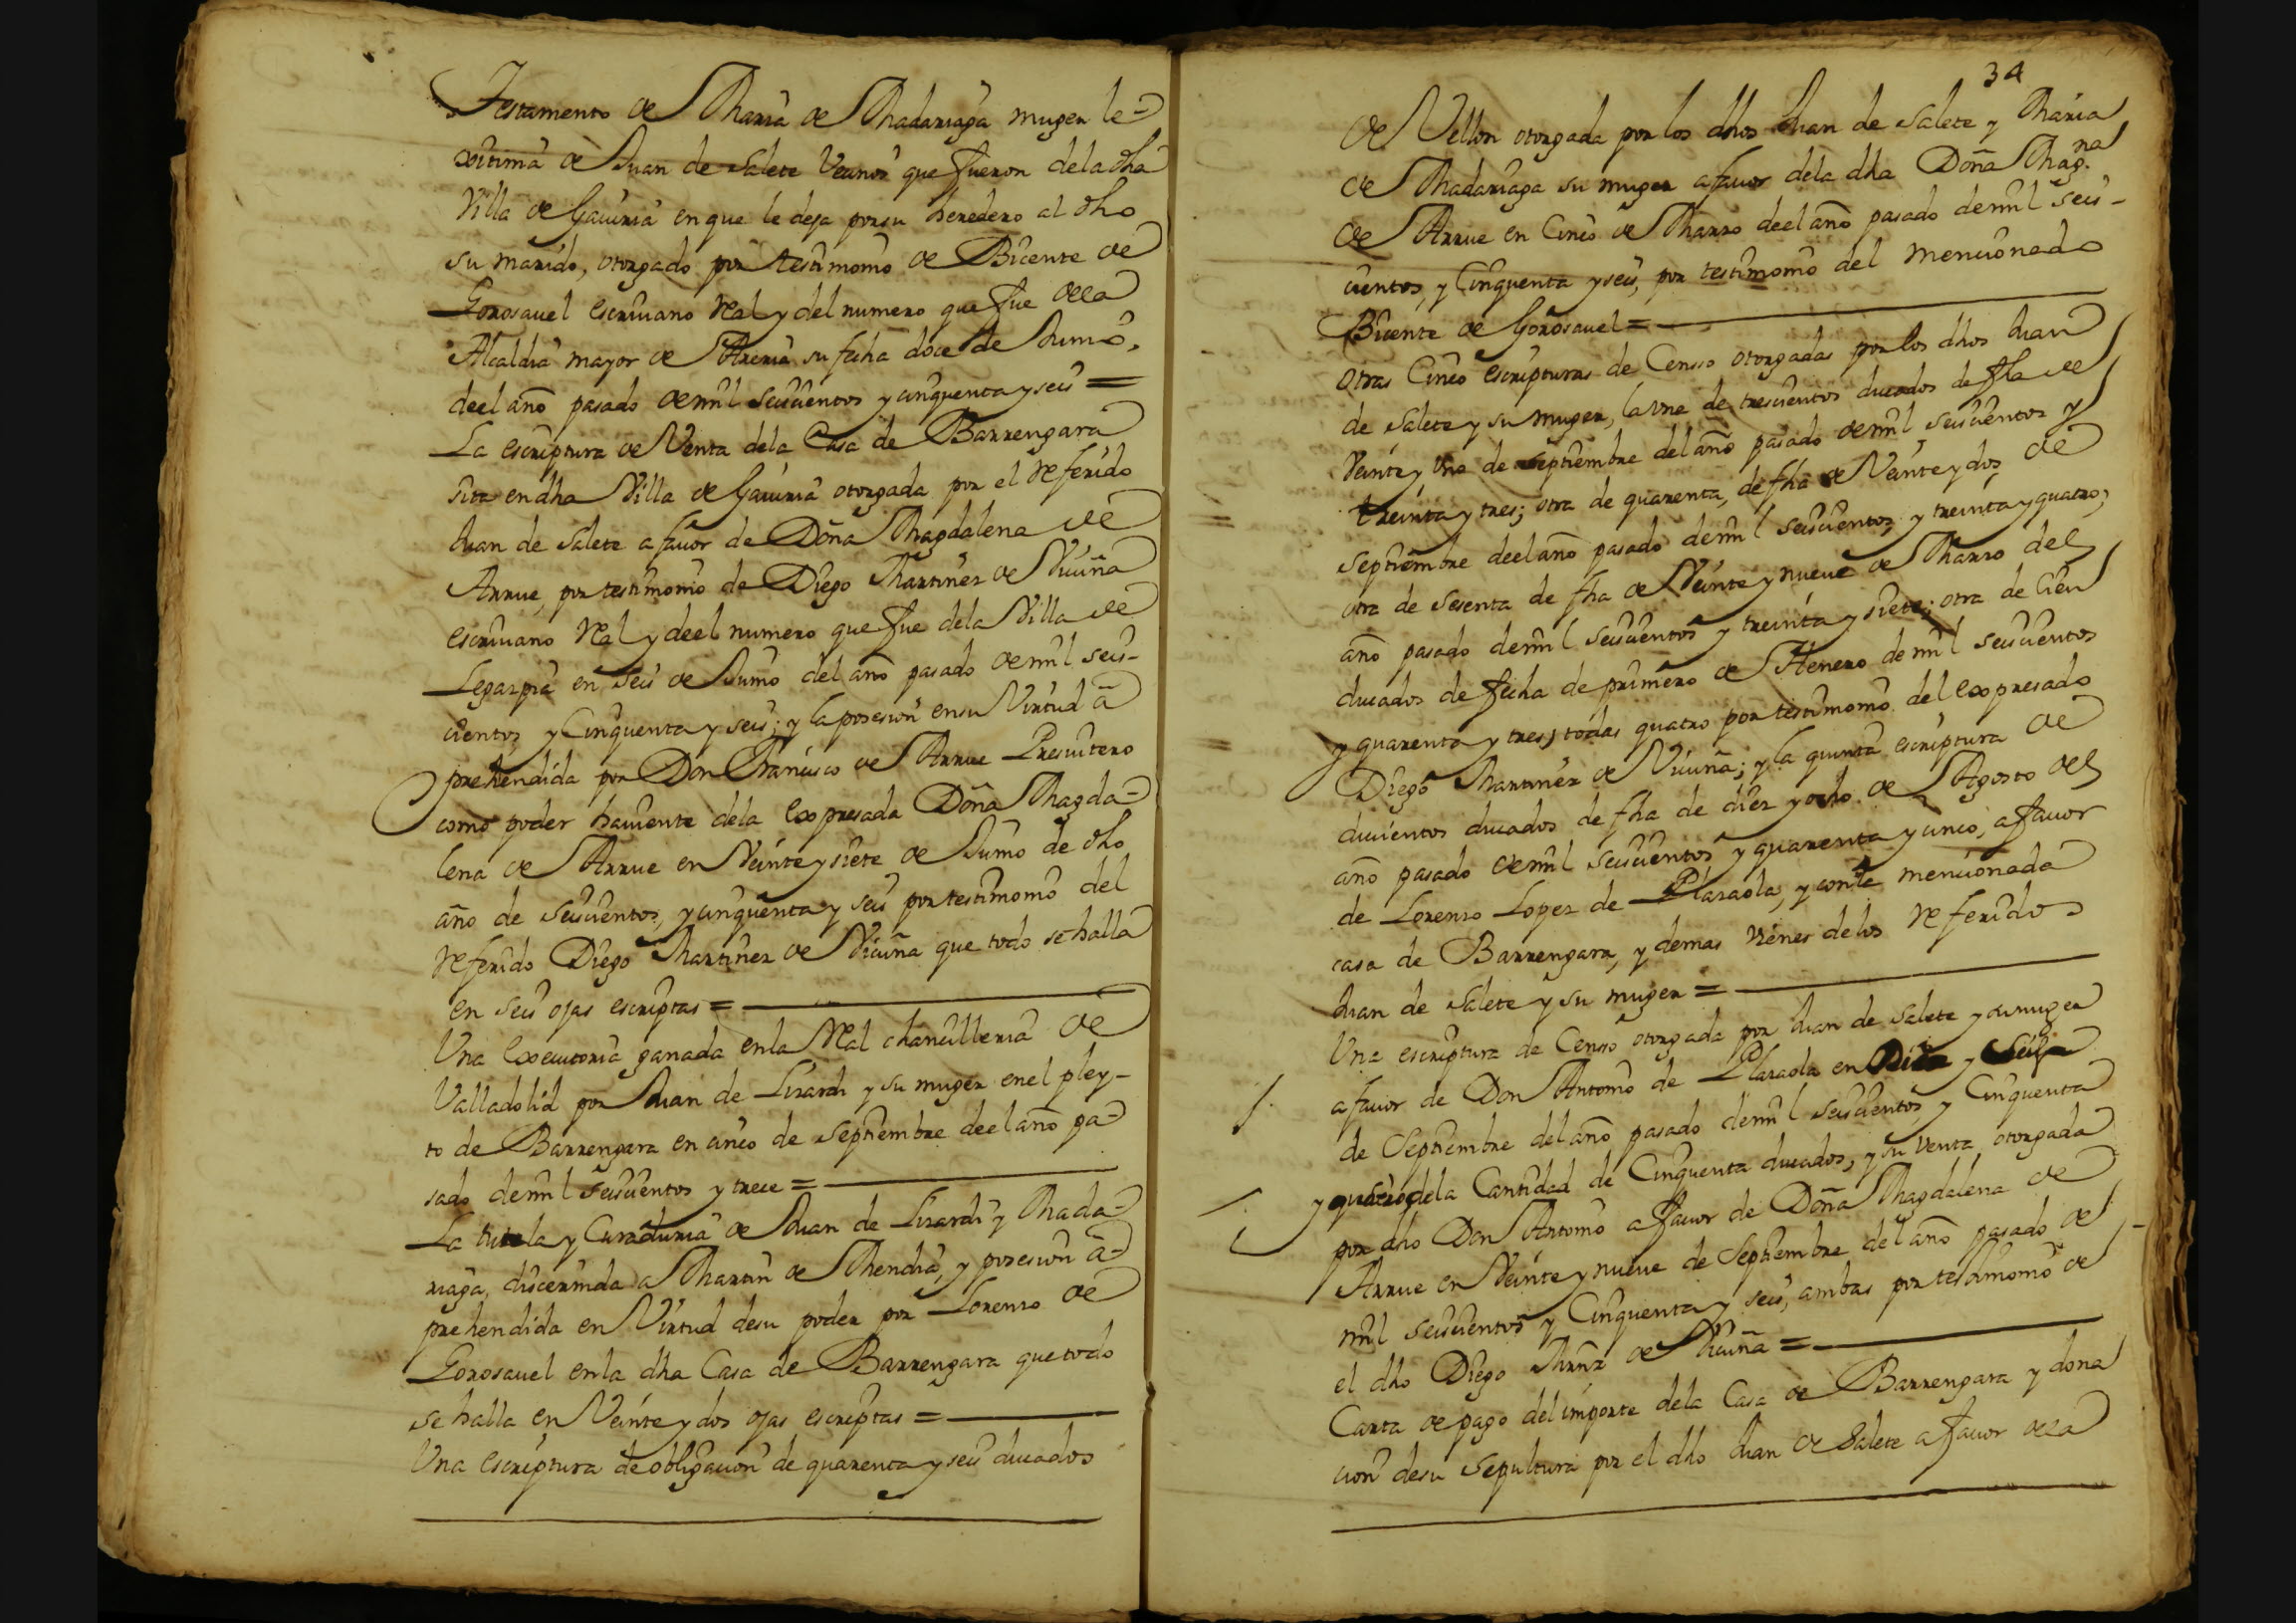 Testamento de Maria de Madariaga muger le-
xitima de Juan de Salete Vecinos que fueron dela dha
Villa de Gaviria en que le deja por su heredero al dho
su marido, otorgado por testimonio de Bicente de
Gorosavel escrivano Real y del numero que fue dela
Alcaldia mayor de Areria su fecha doce de Junio,
deel año pasado de mil seiscientos y cinquenta y seis =
La escriptura de Venta dela Casa de Barrengara
sita en dha Villa de Gaviria otorgada por el referido
Juan de Salete a favor de Doña Magdalena de
Arrue, por testimonio de Diego Martinez de Vicuña
escrivano Real y deel numero que fue dela Villa de
Legazpia en seis de Junio del año pasado de mil seis-
cientos y Cinquenta y seis; y la posesion en su Virtud a
prehendida por Don Francisco de Arrue Presvitero
como poder haviente dela expresada Doña Magda-
lena de Arrue en Veinte y siete de Junio de dho
año de seiscientos, y cinquenta y seis por testimonio del
referido Diego Martinez de Vicuña que todo se halla
en seis ojas escriptas =
Una executoria ganada en la Real chancilleria de
Valladolid por Juan de Lizardi y su muger en el pley-
to de Barrengara en cinco de Septiembre deel año pa-
sado de mil seiscientos y trece =
La tutela y Curaduria de Juan de Lizardi y Mada-
riaga, discernida a Martin de Mendia, y posesion a-
prehendida en Virtud desu poder por Lorenzo de
Gorosavel en la dha Casa de Barrengara que todo
se halla en Veinte y dos ojas escriptas =
Una escriptura de obligacion de quarenta y seis ducados
34
de Vellon otorgada por los dhos Juan de Salete y Maria
de Madariaga su muger a favor dela dha Doña Magna
de Arrue en Cinco de Marzo deel año pasado de mil seis-
cientos, y Cinquenta y seis, por testimonio del mencionado
Bicente de Gorosavel =
Otras Cinco escripturas de Censso otorgadas por los dhos Juan
de Salete y su muger, la Una de trescientos ducados de fha de
Veinte y Uno de Septiembre del año pasado de mil seiscientos y
treinta y tres; otra de quarenta, de fha de Veinte y dos de
Septiembre deel año pasado de mil seiscientos, y treinta y quatro;
otra de sesenta de fha de Veinte y nueve de Marzo del
año pasado de mil seiscientos y treinta y siete; otra de Cien
ducados de fecha de primero de Henero de mil seiscientos
y quarenta y tres, todas quatro por testimonio del expresado
Diego Martinez de Vicuña; y la quinta escriptura de
ducientos ducados de fha de diez y ocho de Agosto del
año pasado de mil seiscientos y quarenta y cinco, a favor
de Lorenzo Lopez de Plazaola, y contra mencionada
casa de Barrengara, y demas vienes delos referidos
Juan de Salete y su muger =
Una escriptura de Censso otorgada por Juan de Salete y su muger
a favor de Don Antonio de Plazaola en Diez y Seis
de Septiembre del año pasado de mil seiscientos, y Cinquenta
y quatro dela Cantidad de Cinquenta ducados, y su Venta otorgada
por dho Don Antonio a favor de Doña Magdalena de
Arrue en Veinte y nueve de Septiembre del año pasado de
mil seiscientos y Cinquenta y seis, ambas por testimonio de
el dho Diego Mrnz de Vicuña =
Carta de pago del importe dela Casa de Barrengara y dona
cion desu Sepultura por el dho Juan de Salete a favor dela